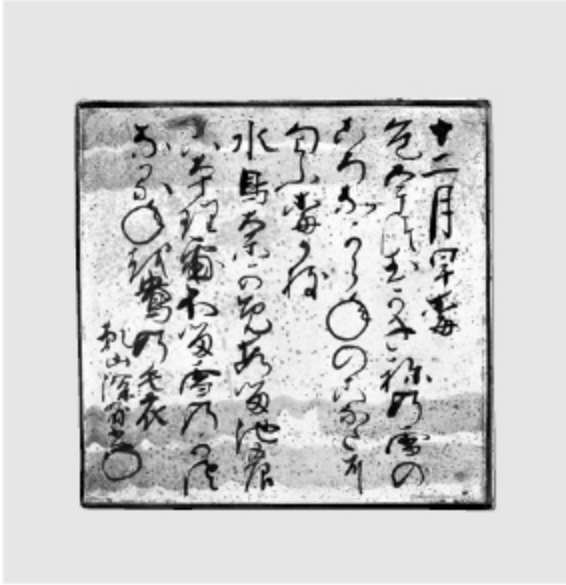 十二月早梅
色うつむかきねの雪の
ころなから〇のこなたに
匂ふ梅か枝
水鳥なかめする池
雪のかさ
なる〇を鴛の毛衣
乾山深省書